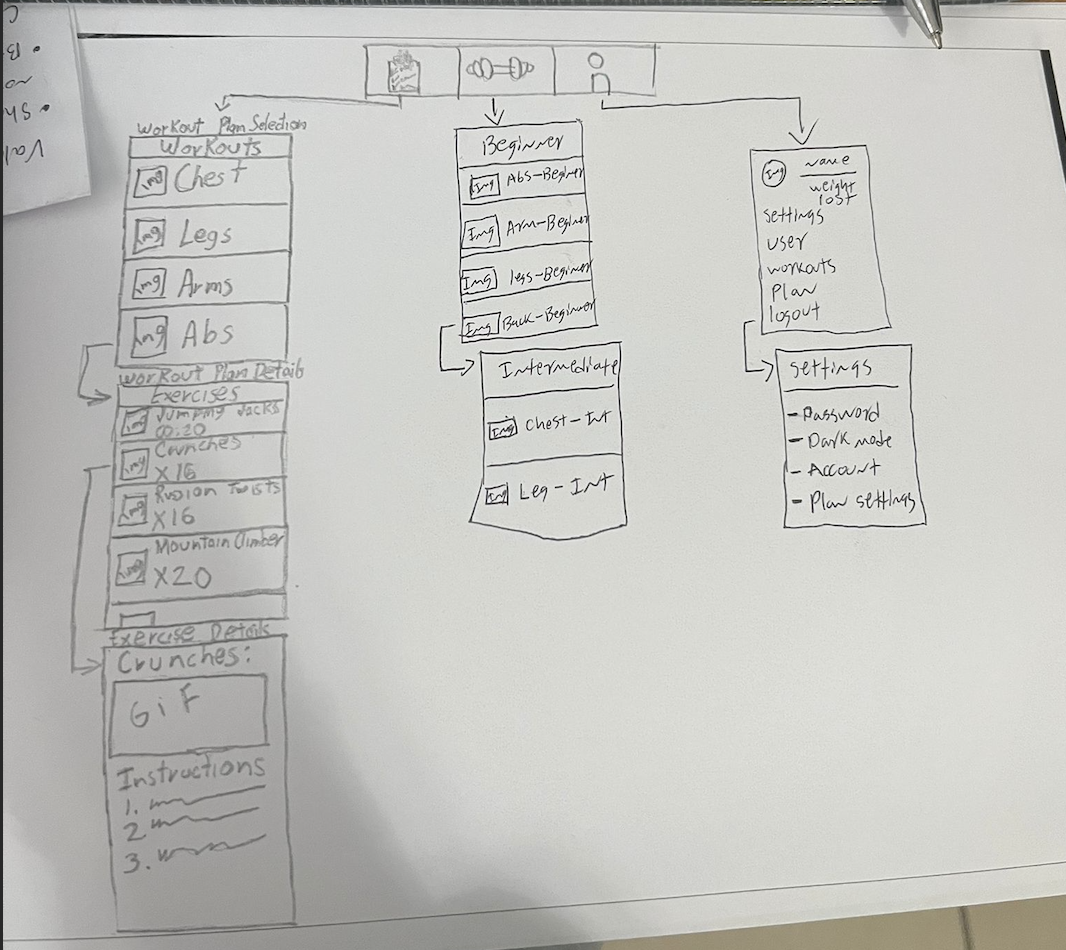 Workout Plan Selection
Workouts
Img Chest
Img Legs
Img Arms
Img Abs
Workout Plan Details
Exercises
Img Jumping Jacks
00:20
Img Crunches
X16
Img Russion Twists
X16
Img Mountain Climber
X20
Exercise Details
Crunches:
GiF
Instructions
1.
2
3.
Beginner
Img Abs-Beginer
Img Arm-Beginer
Img legs-Beginer
Img Back-Beginner
Intermediate
Img Chest-Int
Img Leg-Int
Img Name
weight
lost
settings
user
workouts
Plan
logout
settings
- Password
- Dark mode
- Account
- Plan settings